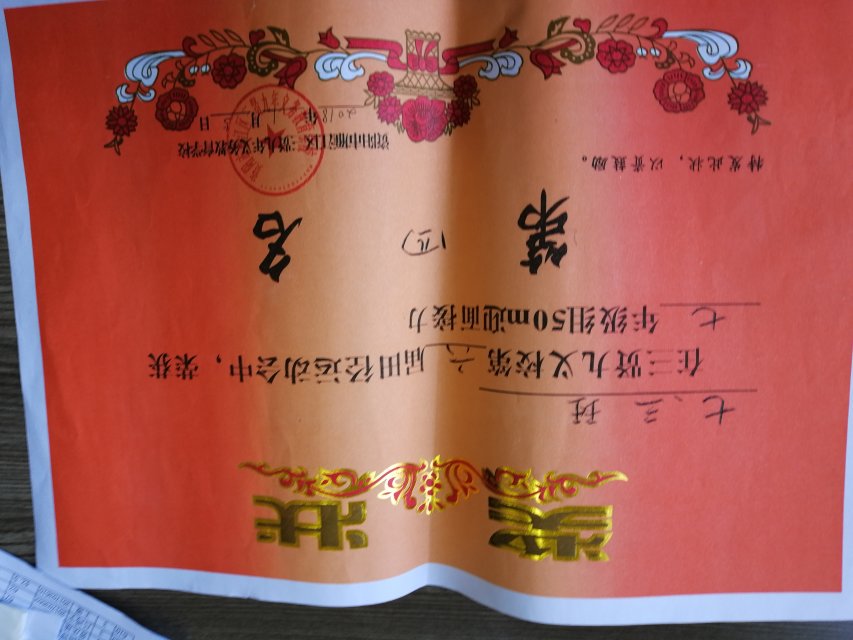 奖状
七、三 班
在三贤九义校第六届田径运动会中，荣获
七 年级组50m迎面接力
第 (五) 名
特发此状，以资鼓励。
资阳市雁江区三贤九年义务教育学校
2018年11月 日